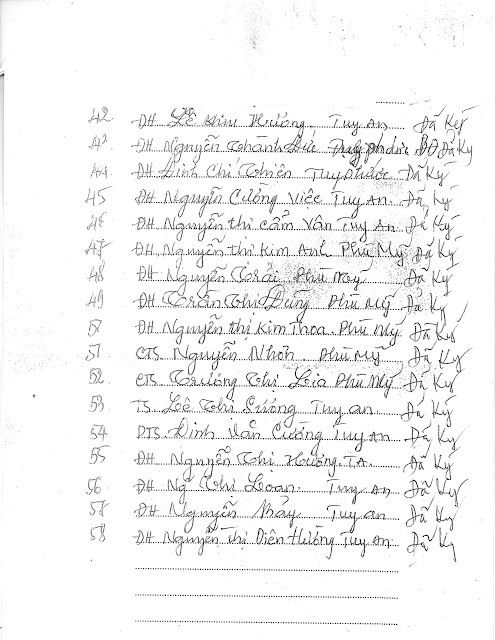 42 ĐH Lê Kim Hương. Tuy An Đã Ký
43 ĐH Nguyễn Thành Đức Đã Ký
44 ĐH Đinh Chí Thiện Tuy Phước. Đã Ký
45 ĐH Nguyễn Cường Việt Tuy An. Đã Ký
46 ĐH Nguyễn thị cẩm Vân Tuy An. Đã Ký
47 ĐH Nguyễn thị Kim Anh Phù Mỹ Đã Ký
48 ĐH Nguyễn Trải Phù Mỹ Đã Ký
49 ĐH Trần Thị Dung Phù Mỹ Đã Ký
50 ĐH Nguyễn thị Kim Thoa. Phù Mỹ Đã Ký
51 CTS. Nguyễn Nhơn. Phù Mỹ Đã Ký
52 CTS Trương Thị Phù Mỹ Đã Ký
53 TS. Lê Thị Sương Tuy an Đã Ký
54 PTS. Đinh Văn Cường Tuy An Đã Ký
55 ĐH Nguyễn Thị Hương T.A. Đã Ký
56 ĐH Ng Thị Loan. Tuy An Đã Ký
57 ĐH Nguyễn Bảy Tuy an Đã Ký
58 ĐH Nguyễn Thị Diên Hường Tuy An. Đã Ký